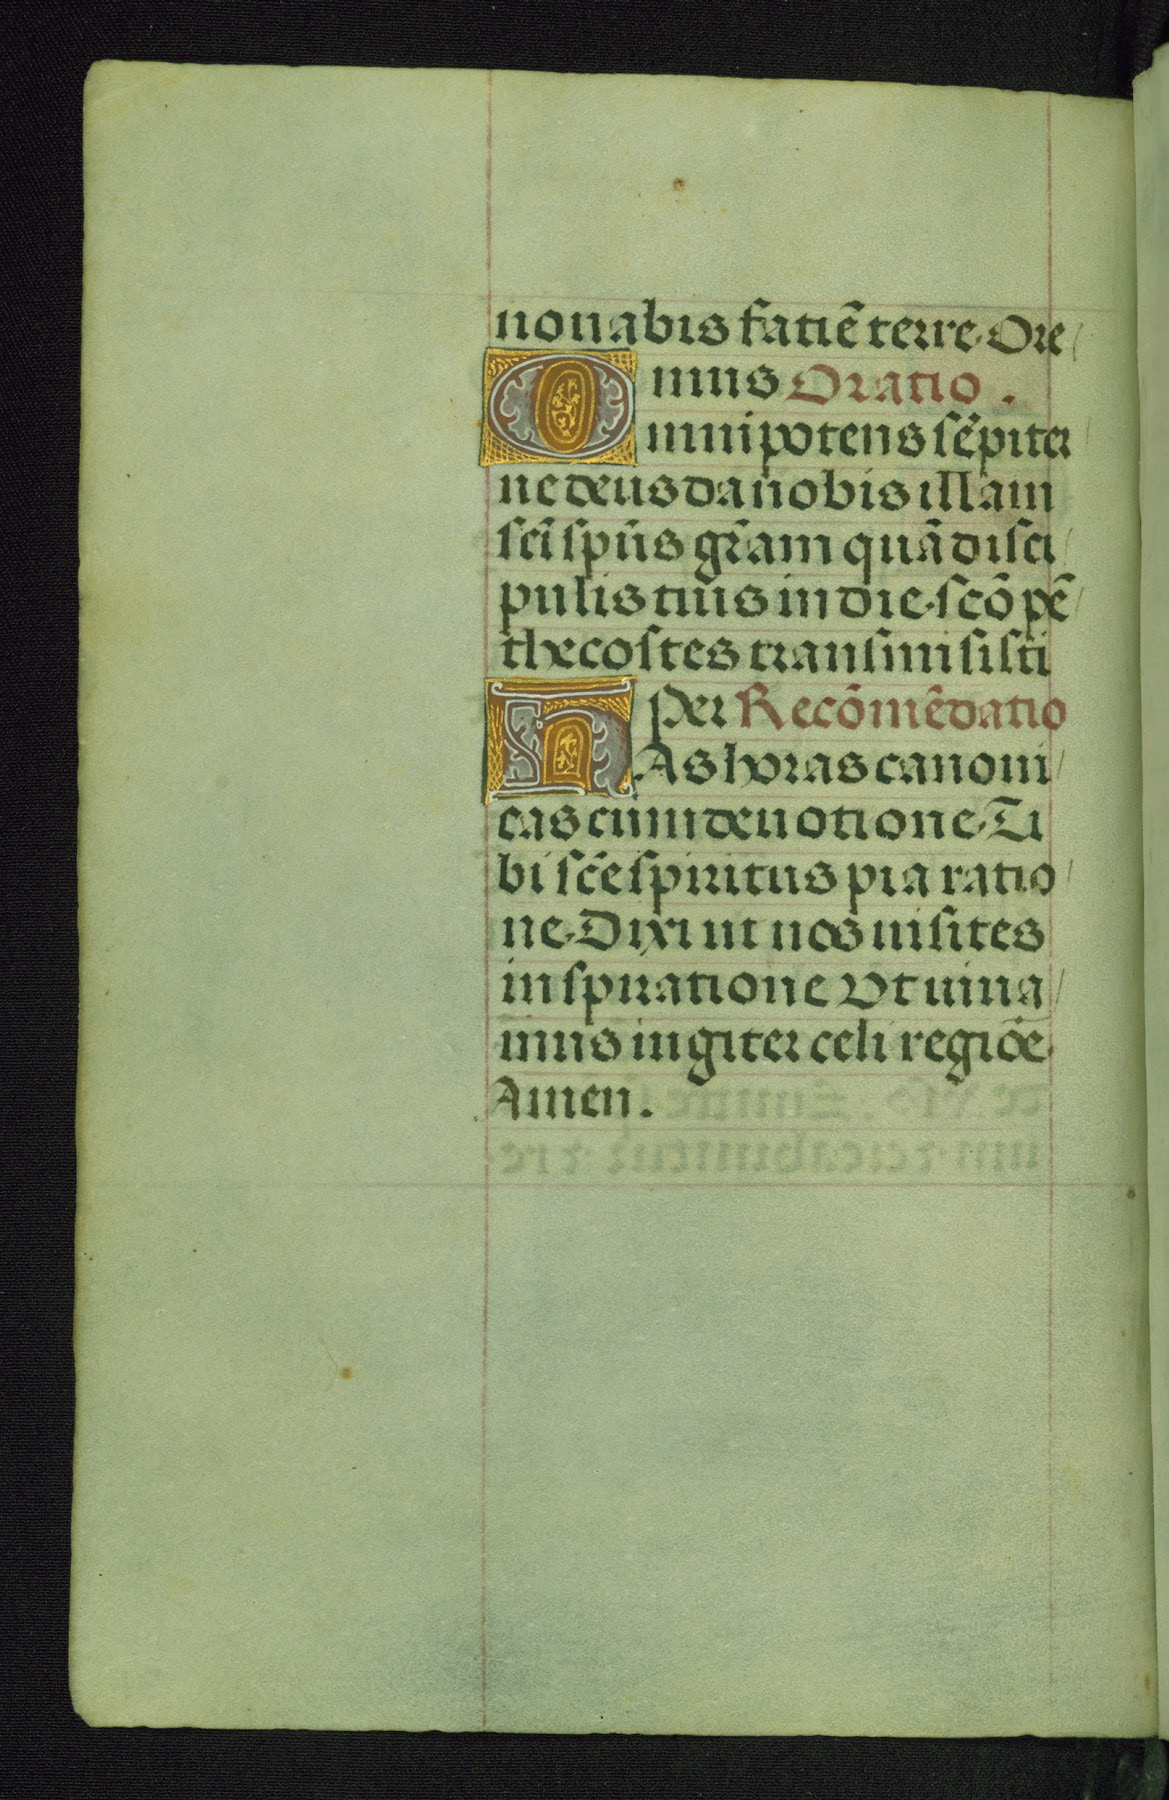 nouabis fatiē terre. Ore
mus Oratio.
Omnipotens sēpiter
ne deus da nobis illam
scī spūs grām quā disci
pulis tuis in die scō pē
thecostes transmisisti
per Recōmēdatio
HAs horas canoni
cas cum deuotione. Ti
bi scē spiritus pia ratio
ne. Dixi ut nos uisites
inspiratione Vt uiua
mus iugiter celi regiōe.
Amen.